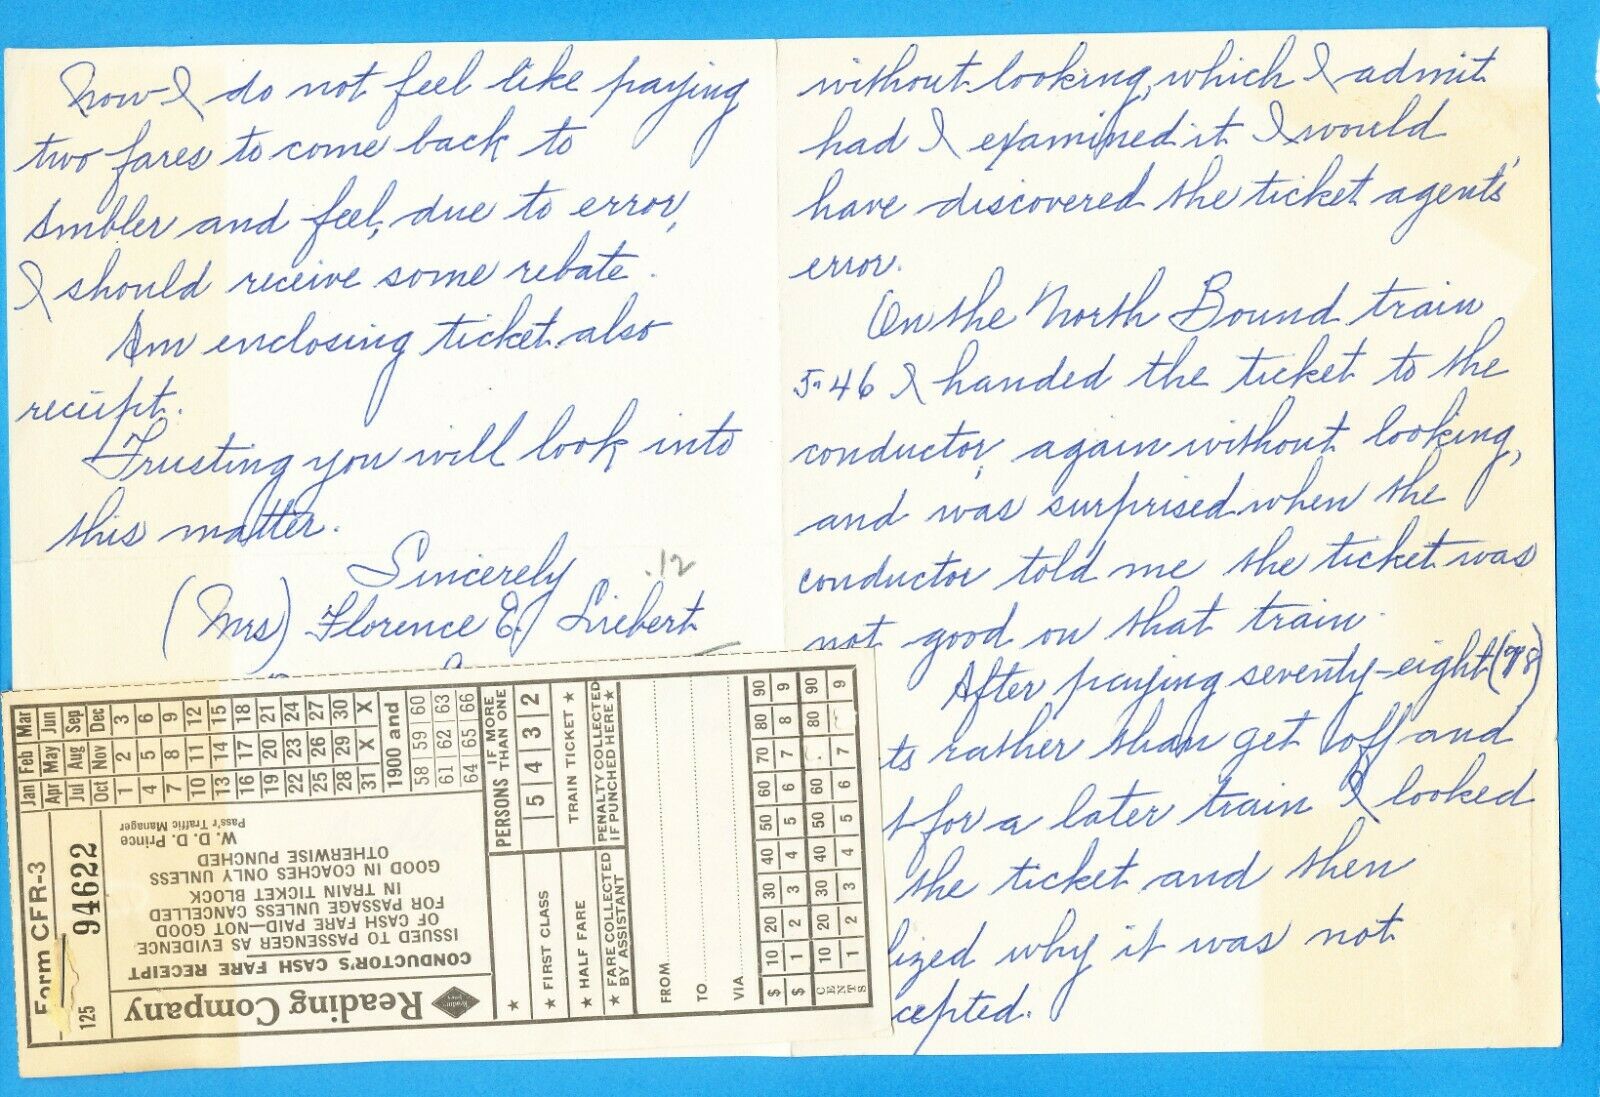 Now I do not feel like paying
two fares to come back to
Ambler and feel, due to error,
I should receive some rebate.
Am enclosing ticket also
receipt.
Trusting you will look into
this matter.
Sincerely
.12
(Mrs) Florence E. Liebert
without looking, which I admit
had I examined it I would
have discovered the ticket agents'
error.
On the North Bound train
5:46 I handed the ticket to the
conductor, again without looking,
and was surprised when the
conductor told me the ticket was
not good on that train.
After paying seventy-eight (78)
ts rather than get off and
t for a later train I looked
the ticket and then
lized why it was not
cepted.
Reading Company
CONDUCTOR'S CASH FARE RECEIPT
ISSUED TO PASSENGER AS EVIDENCE
OF CASH FARE PAID—NOT GOOD
FOR PASSAGE UNLESS CANCELLED
IN TRAIN TICKET BLOCK
GOOD IN COACHES ONLY UNLESS
OTHERWISE PUNCHED
W. D. D. Prince
Pass'r Traffic Manager
125
Form CFR-3
94622
Jan Feb Mar
Apr May Jun
Jul Aug Sep
Oct Nov Dec
1 2 3
4 5 6
7 8 9
10 11 12
13 14 15
16 17 18
19 20 21
22 23 24
25 26 27
28 29 30
31 X X
1900 and
58 59 60
61 62 63
64 65 66
PERSONS IF MORE THAN ONE
5 4 3 2
★
★ FIRST CLASS
TRAIN TICKET ★
★ HALF FARE
★ FARE COLLECTED BY ASSISTANT
PENALTY COLLECTED IF PUNCHED HERE ★
FROM
TO
VIA
$ 10 20 30 40 50 60 70 80 90
$ 1 2 3 4 5 6 7 8 9
CENTS 10 20 30 40 50 60 80 90
1 2 3 4 5 6 7 9